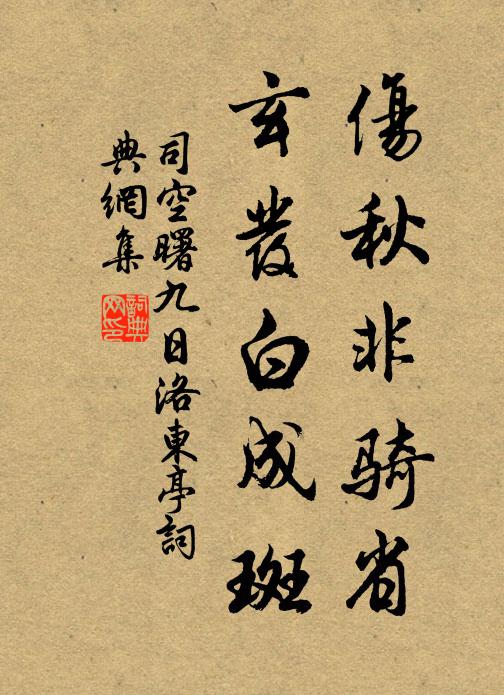 傷秋非騎省
玄發白成斑
司空曙九日洛東亭詞
典網集
詞典網印